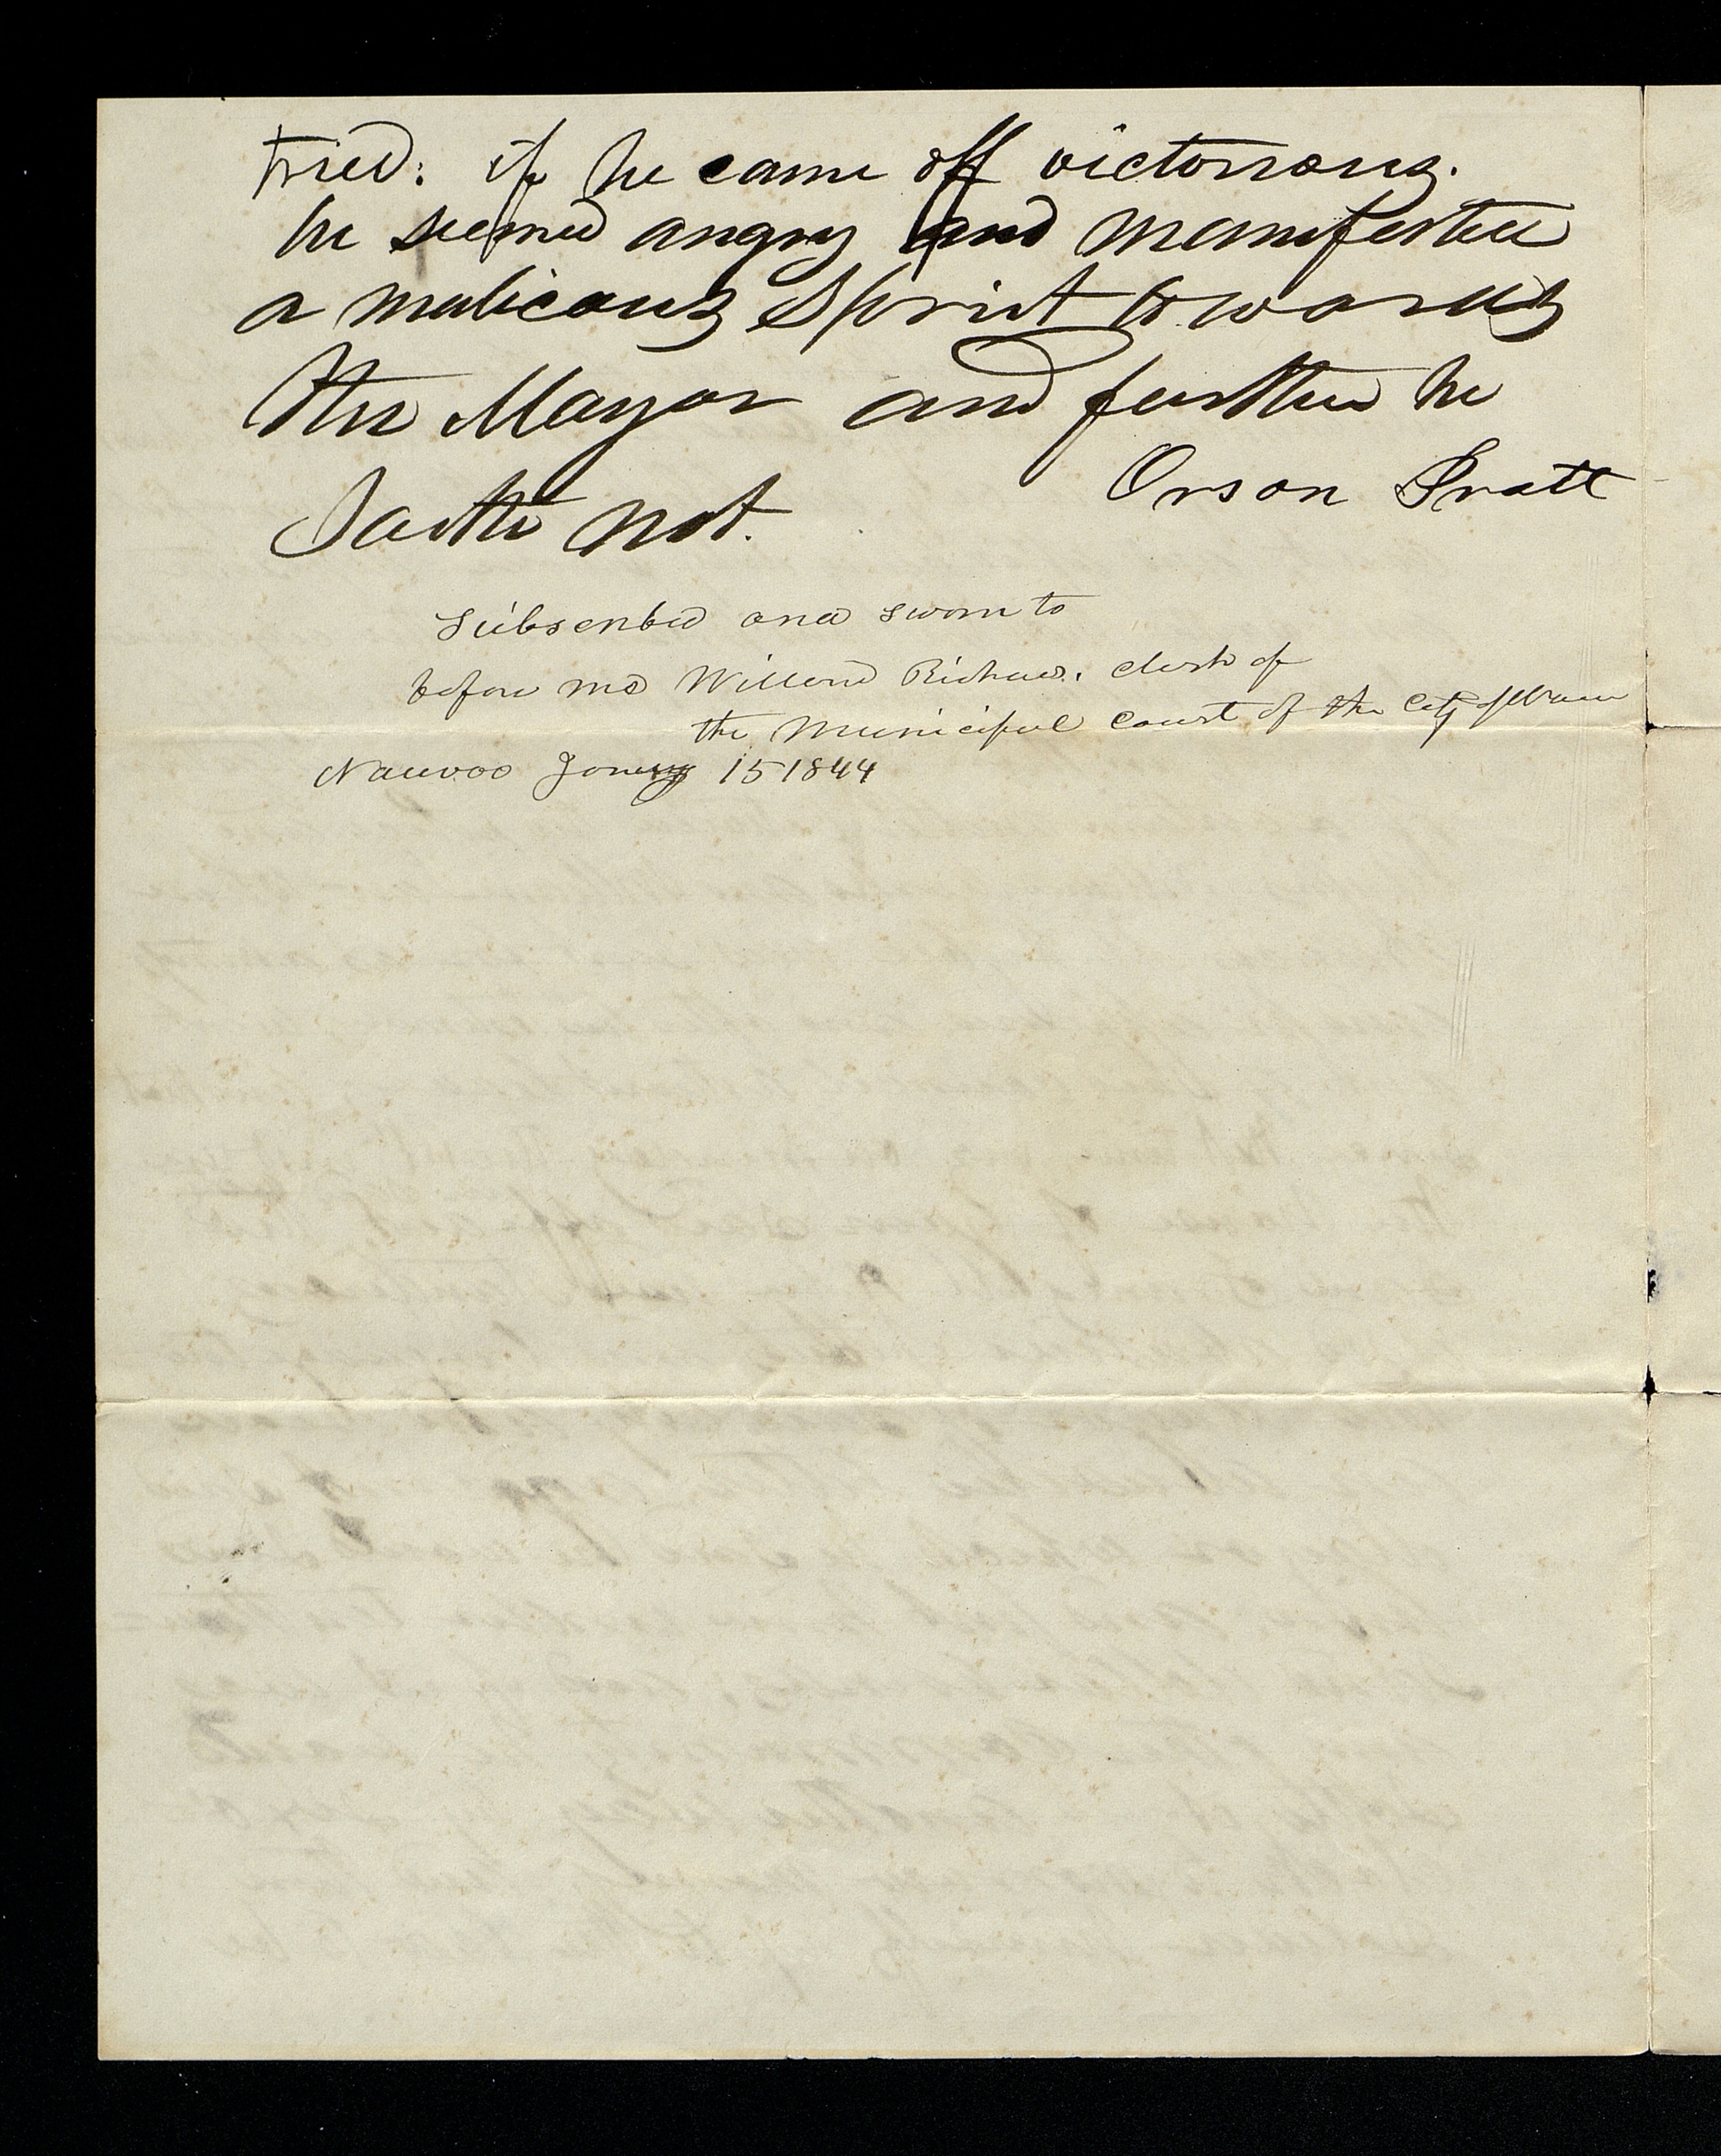 tried: if he came off victorious.
he seemed angry and manifested
a malicous Spirit towards
the Mayor and further he
Saith not.
Orson Pratt
Subscribed and sworn to
before me Willard Richards. clerk of
the Municipal Court of the City of Nauvoo
Nauvoo January 15 1844